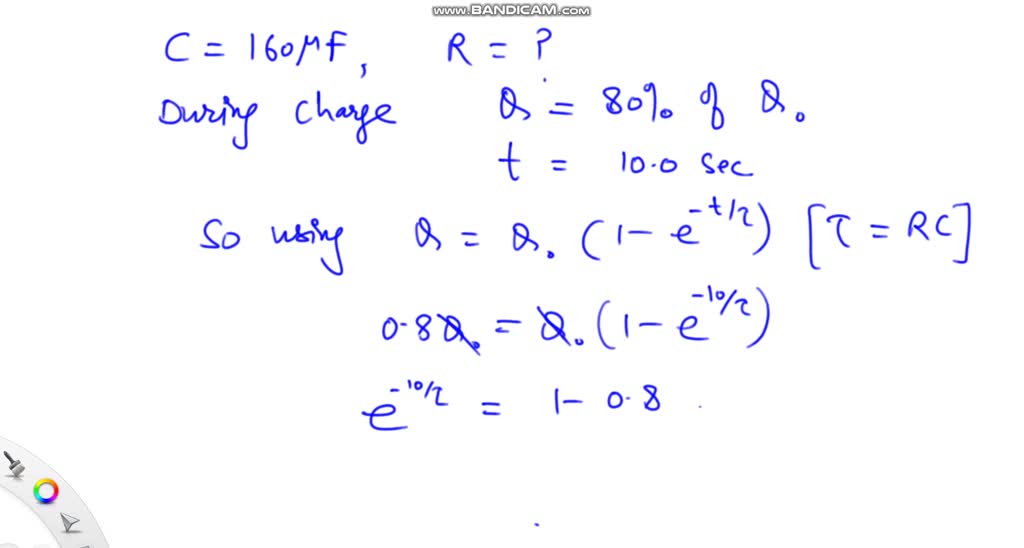 www.BANDICAM.com
C = 160μF, R = ?
During charge Q = 80% of Q₀
t = 10.0 sec
So using Q = Q₀ (1 - e^{-t/τ}) [τ = RC]
0.8Q₀ = Q₀ (1 - e^{-10/τ})
e^{-10/τ} = 1 - 0.8